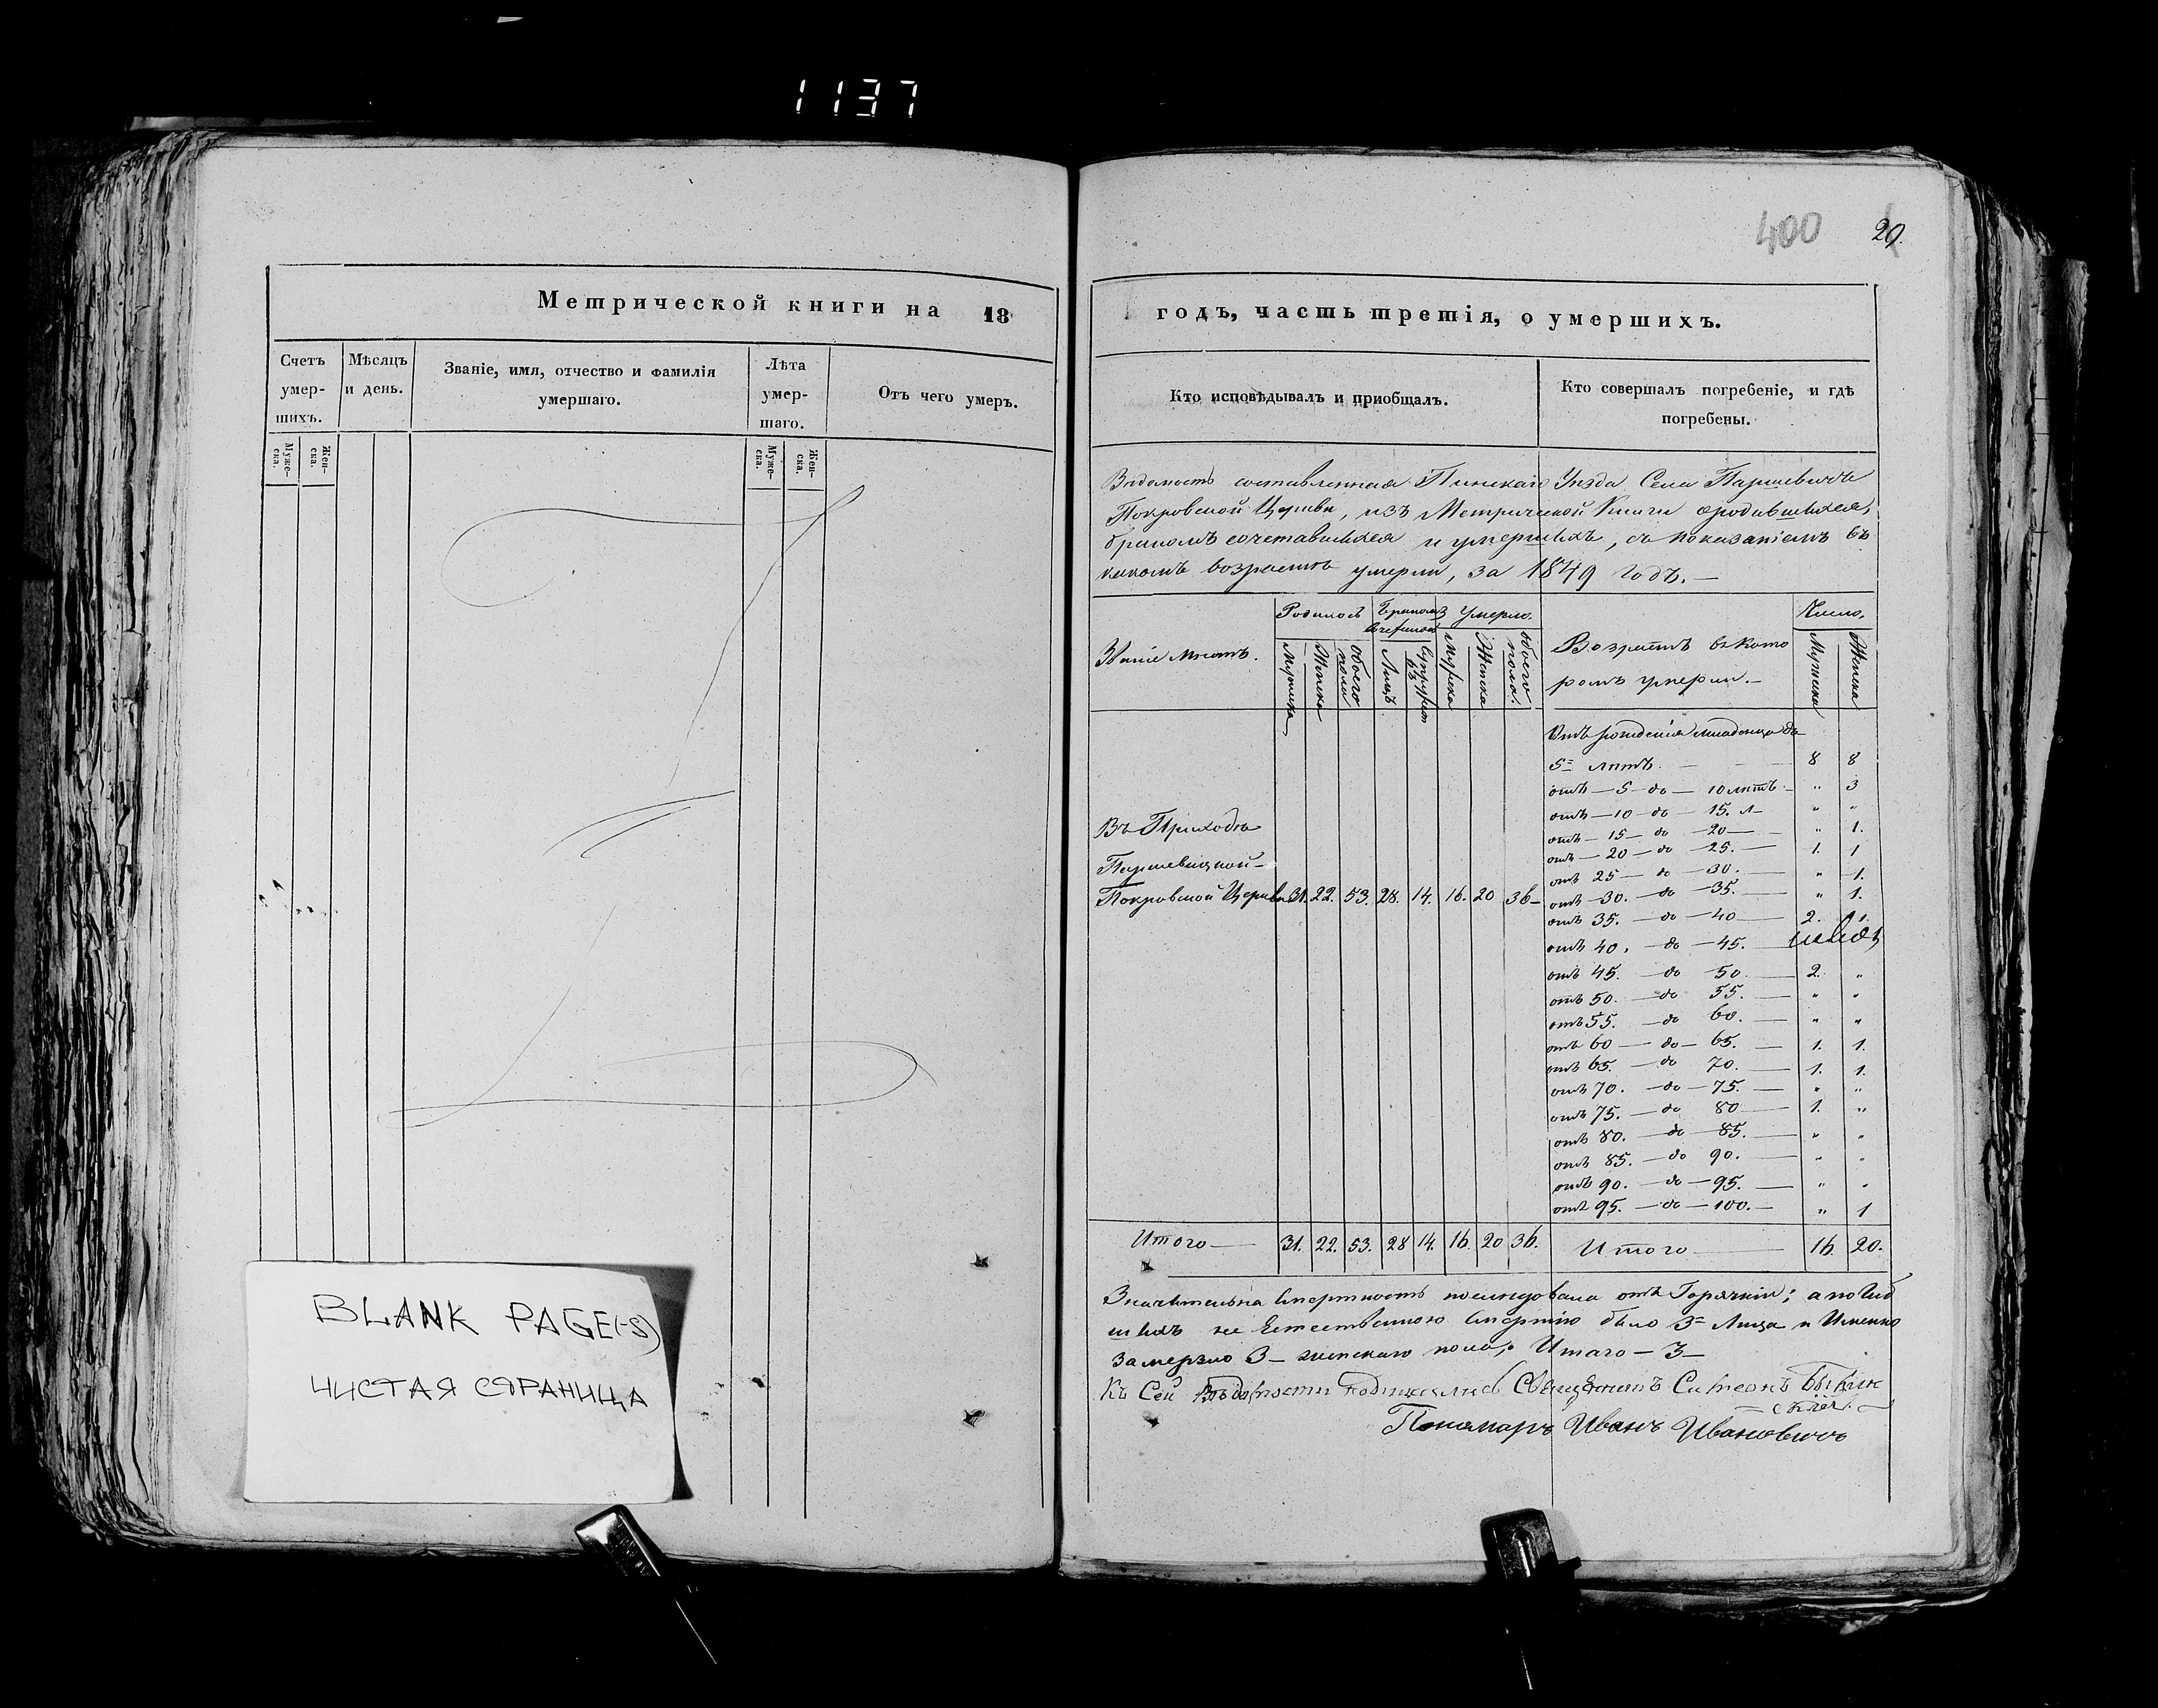 1137
400 29.
Метрической книги на 18
годъ, часть третія, о умершихъ.
Счетъ умер-шихъ.
Мѣсяцъ и день.
Званіе, имя, отчество и фамилія умершаго.
Лѣта умер-шаго.
Отъ чего умеръ.
Муже-ска.
Жен-ска.
Муже-ска.
Жен-ска.
BLANK PAGE(-S)
ЧИСТАЯ СТРАНИЦА
Кто исповѣдывалъ и пріобщалъ.
Кто совершалъ погребеніе, и гдѣ погребены.
Вѣдомость составленная Пинскаго Уѣзда Села Паршевичъ
Покровской Церкви, изъ Метрической Книги ородившихся,
бракомъ сочетавшихся и умершихъ, съ показаніемъ въ
какомъ возрастѣ умерли, за 1849 годъ. —
Званіе мѣстъ.
Родилось
Бракомъ
Умерло.
Возрастъ въ кото
ромъ умерли. —
Число.
Мужска
Женска
обоего пола
Лицъ
Мужска
Женска
обоего пола.
Мужска
Женска
Отъ рожденія младенца до
5= лѣтъ. — 8 8
отъ — 5 — до — 10 лѣтъ — " 3
отъ — 10 — до — 15. л — " "
отъ — 15 — до — 20 — " 1.
отъ — 20 — до — 25. — 1. 1
отъ 25 — до — 30. — " 1.
отъ — 30. — до — 35. — " 1.
отъ 35. — до — 40 — 2. 1.
отъ 40, — до — 45. —
отъ 45. — до 50 — 2. "
отъ 50. — до 55. — " "
отъ 55. — до 60. — " "
отъ 60 — до — 65. — 1. 1.
отъ 65. — до 70. — 1. 1.
отъ 70. — до — 75. — " "
отъ 75. — до 80 — 1. "
отъ 80. — до — 85. — " "
отъ 85. — до 90. — " "
отъ 90. — до — 95. — " "
отъ 95. — до — 100. — " 1
Въ Приходѣ
Паршевицкой —
Покровской Церкви 31. 22. 53. 28. 14. 16. 20 36 —
Итого — 31. 22. 53. 28 14. 16. 20 36.
Итого — 16. 20.
Значительна смертность послѣдовала отъ Горячки; а погиб
шихъ не Естественною смертію было 3= Лица и Именно
замерзло 3 — женскаго пола; Итого — 3 —
Къ Сей Вѣдомости подписались Священникъ Симеонъ
Пономарь Иванъ Ивановичъ